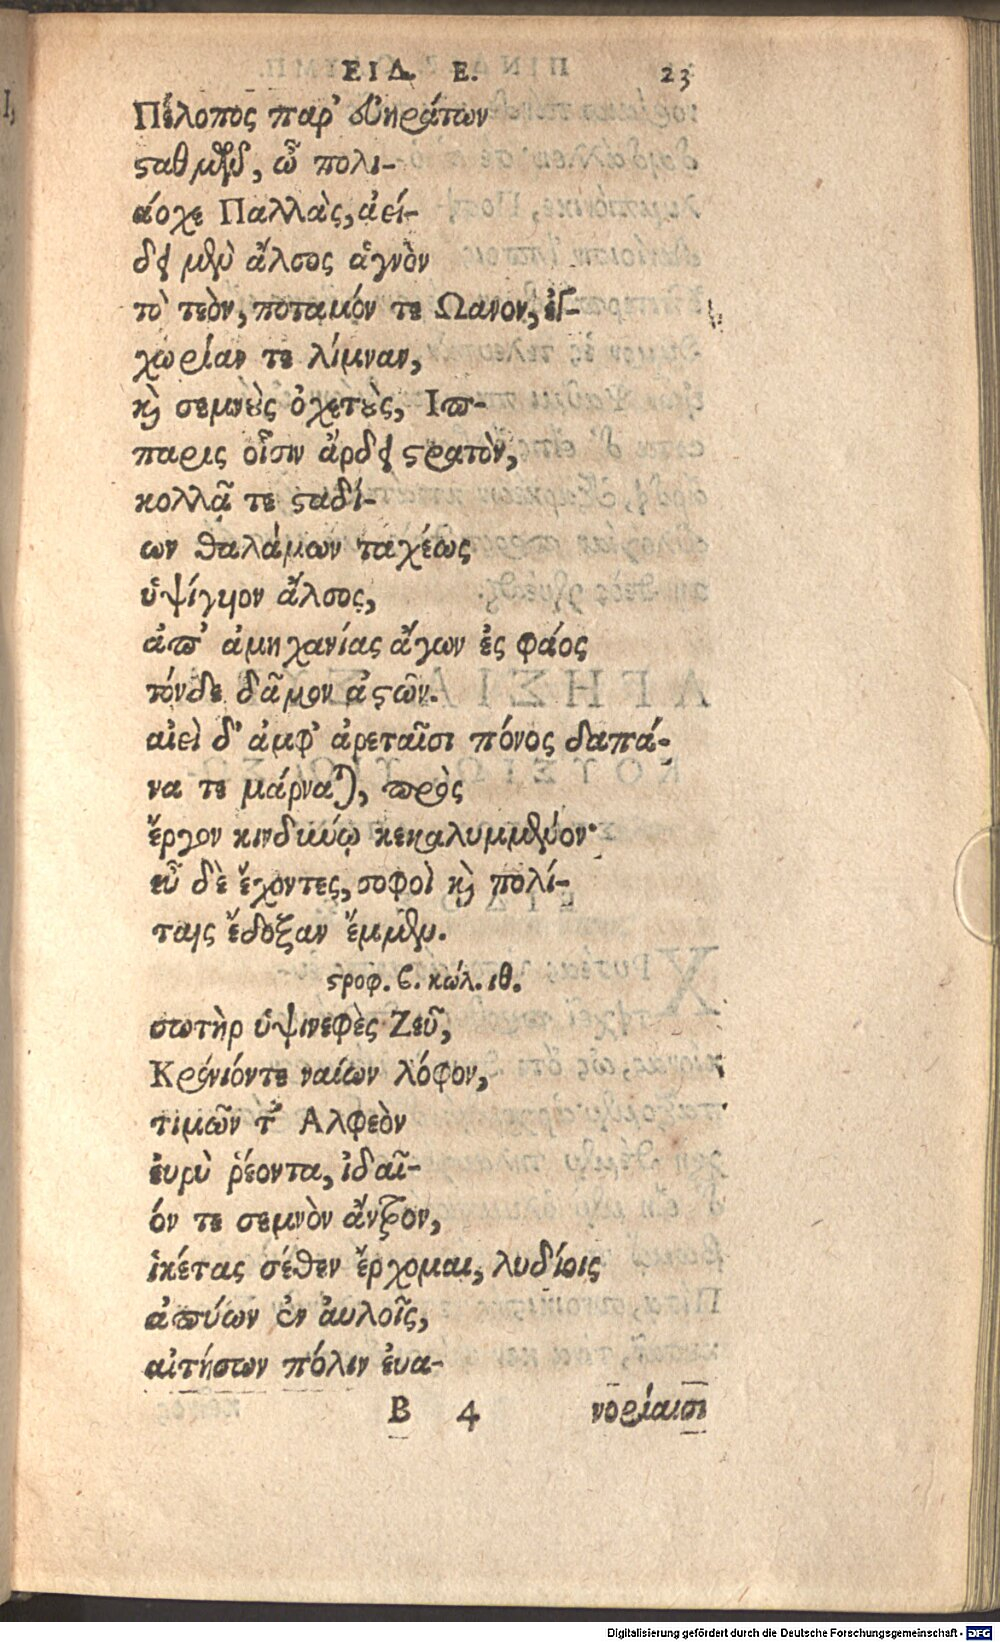 ΕΙΔ. Ε. 23
Πέλοπος παρ' εὐηράτων
σαθμῶν, ὦ πολι-
άοχε Παλλὰς, ἀεί-
δει μὲν ἄλσος ἁγνὸν
τὸ τεὸν, ποταμόν τε Ωανον, ἐγ-
χωρίαν τε λίμναν,
καὶ σεμνοὺς ὀχετοὺς, Ιπ-
παρις οἷσιν ἄρδει στρατὸν,
κολλᾷ τε σταδί-
ων θαλάμων ταχέως
ὑψίγυιον ἄλσος,
ἀπ' ἀμηχανίας ἄγων ἐς φάος
τόνδε δᾶμον ἀστῶν.
αἰεὶ δ' ἀμφ' ἀρεταῖσι πόνος δαπά-
να τε μάρναται, πρὸς
ἔργον κινδύνῳ κεκαλυμμένον·
εὖ δὲ ἔχοντες, σοφοὶ καὶ πολί-
ταις ἔδοξαν ἔμμεν.
στροφ. ϐ. κώλ. ιθ.
σωτὴρ ὑψινεφὲς Ζεῦ,
Κρόνιόντε ναίων λόφον,
τιμῶν τ' Αλφεὸν
ἐυρὺ ῥέοντα, ἰδαῖ-
όν τε σεμνὸν ἄντρον,
ἱκέτας σέθεν ἔρχομαι, λυδίοις
ἀπύων ἐν ἀυλοῖς,
αἰτήσων πόλιν ἐυα-
B 4 νορίαισι
Digitalisierung gefördert durch die Deutsche Forschungsgemeinschaft - DFG